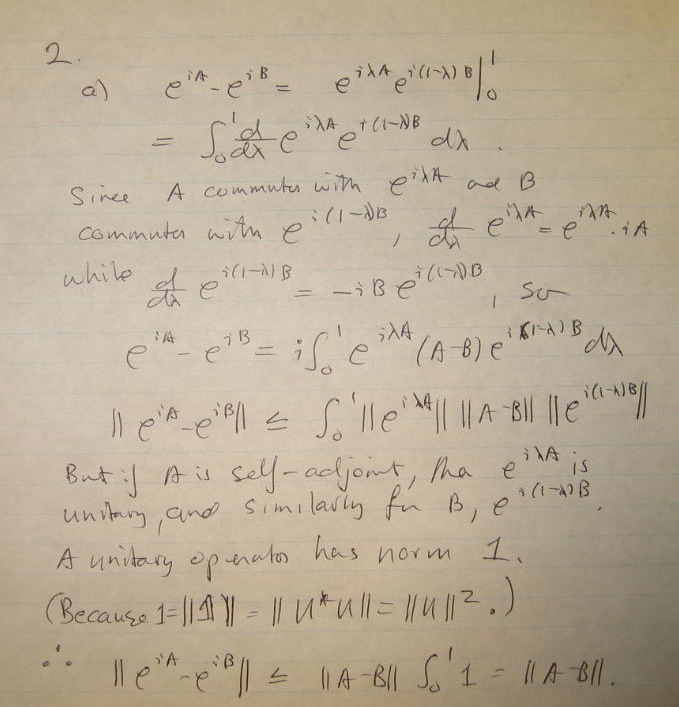 2.
a) e^{iA} - e^{iB} = e^{iλA} e^{i(1-λ)B} |_0^1
= ∫_0^1 d/dλ e^{iλA} e^{i(1-λ)B} dλ .
Since A commutes with e^{iλA} and B
commutes with e^{i(1-λ)B}, d/dλ e^{iλA} = e^{iλA} . iA
while d/dλ e^{i(1-λ)B} = -iB e^{i(1-λ)B}, so
e^{iA} - e^{iB} = i∫_0^1 e^{iλA} (A-B) e^{i(1-λ)B} dλ
|| e^{iA} - e^{iB} || ≤ ∫_0^1 || e^{iλA} || || A-B || || e^{i(1-λ)B} ||
But if A is self-adjoint, then e^{iλA} is
unitary, and similarly for B, e^{i(1-λ)B}.
A unitary operator has norm 1.
(Because 1 = ||1|| = || U* U || = || U ||^2 .)
∴ || e^{iA} - e^{iB} || ≤ || A-B || ∫_0^1 1 = || A-B ||.